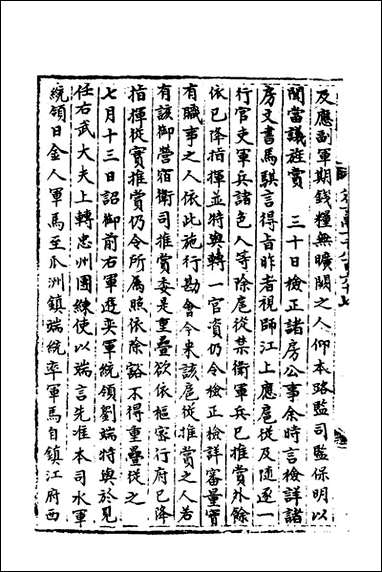 及應副軍期錢糧無曠闕之人仰本路監司監保明以
聞當議旌賞　三十日檢正諸房公事余時言檢詳諸
房文書馬騏言得旨昨者視師江上應扈從及隨逐一
行官吏軍兵諸色人等除扈從禁衛軍兵已推賞外餘
依已降指揮並特與轉一官資仍令檢正檢詳審量實
有職事之人依此施行勘會今來該扈從推賞之人若
有該御營宿衛司推賞委是重疊欲依樞密行府已降
指揮從實推賞仍令所屬照依除豁不得重疊從之
七月十三日詔御前右軍選奕軍統領劉端特與於見
任右武大夫上轉忠州團練使以端言先准本司水軍
統領日金人軍馬至瓜洲鎮端統率軍馬自鎮江府西